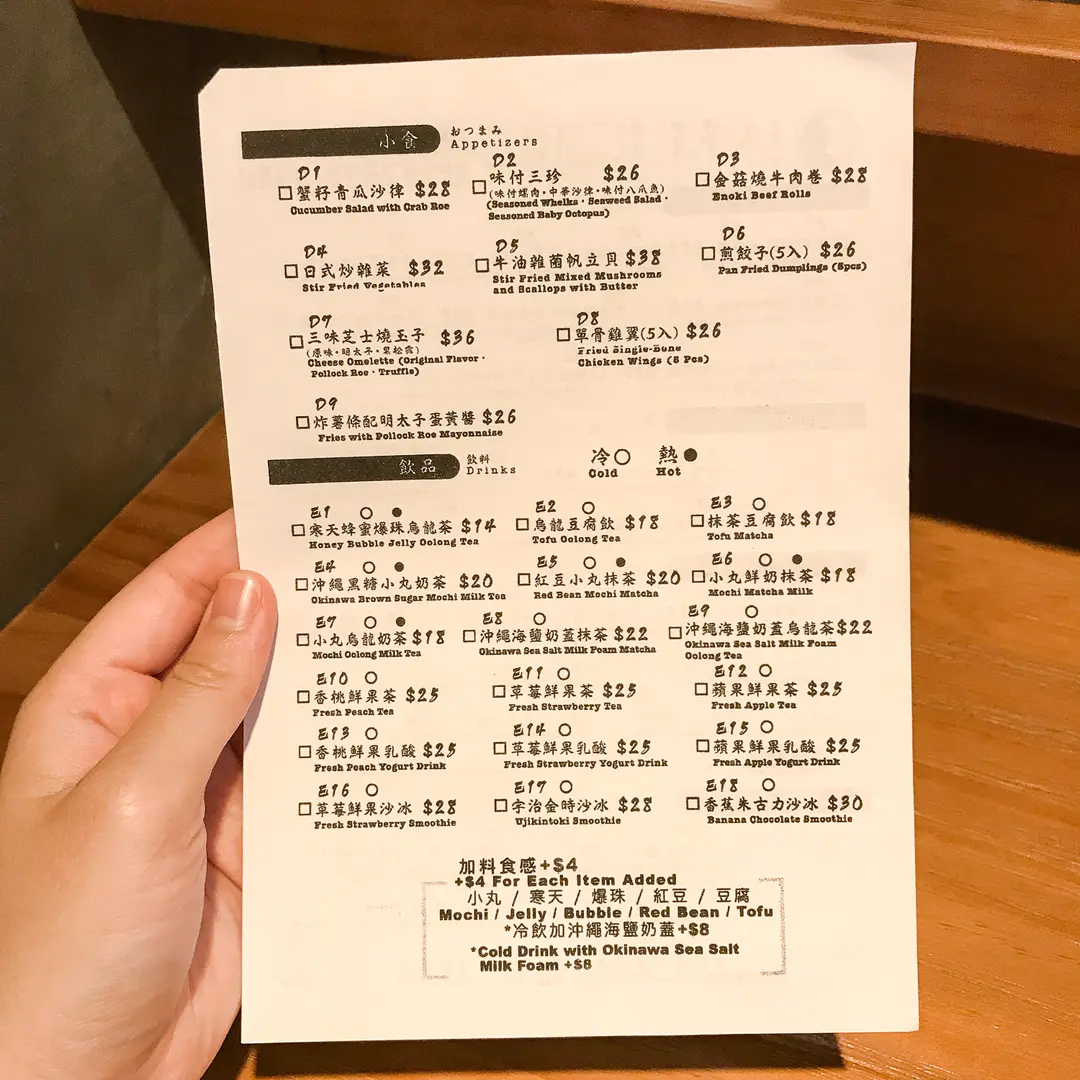 小食 おつまみ
Appetizers
D1 D2 D3
蟹籽青瓜沙律 $28 味付三珍 $26 金菇燒牛肉卷 $28
Cucumber Salad with Crab Roe (味付螺肉・中華沙律・味付八爪魚) Enoki Beef Rolls
(Seasoned Whelks・Seaweed Salad・
Seasoned Baby Octopus)
D4 D5 D6
日式炒雜菜 $32 牛油雜菌帆立貝 $38 煎餃子(5入) $26
Stir Fried Vegetables Stir Fried Mixed Mushrooms Pan Fried Dumplings (5pcs)
and Scallops with Butter
D7 D8
三味芝士燒玉子 $36 單骨雞翼(5入) $26
(原味・明太子・黑松露) Fried Single-Bone
Cheese Omelette (Original Flavor・ Chicken Wings (5 Pcs)
Pollock Roe・Truffle)
D9
炸薯條配明太子蛋黃醬 $26
Fries with Pollock Roe Mayonnaise
飲品 飲料 冷○ 熱●
Drinks Cold Hot
E1 ○ ● E2 ○ E3 ○
寒天蜂蜜爆珠烏龍茶 $14 烏龍豆腐飲 $18 抹茶豆腐飲 $18
Honey Bubble Jelly Oolong Tea Tofu Oolong Tea Tofu Matcha
E4 ○ ● E5 ○ ● E6 ○ ●
沖繩黑糖小丸奶茶 $20 紅豆小丸抹茶 $20 小丸鮮奶抹茶 $18
Okinawa Brown Sugar Mochi Milk Tea Red Bean Mochi Matcha Mochi Matcha Milk
E7 ○ ● E8 ○ E9 ○
小丸烏龍奶茶 $18 沖繩海鹽奶蓋抹茶 $22 沖繩海鹽奶蓋烏龍茶 $22
Mochi Oolong Milk Tea Okinawa Sea Salt Milk Foam Matcha Okinawa Sea Salt Milk Foam
Oolong Tea
E10 ○ E11 ○ E12 ○
香桃鮮果茶 $25 草莓鮮果茶 $25 蘋果鮮果茶 $25
Fresh Peach Tea Fresh Strawberry Tea Fresh Apple Tea
E13 ○ E14 ○ E15 ○
香桃鮮果乳酸 $25 草莓鮮果乳酸 $25 蘋果鮮果乳酸 $25
Fresh Peach Yogurt Drink Fresh Strawberry Yogurt Drink Fresh Apple Yogurt Drink
E16 ○ E17 ○ E18 ○
草莓鮮果沙冰 $28 宇治金時沙冰 $28 香蕉朱古力沙冰 $30
Fresh Strawberry Smoothie Ujikintoki Smoothie Banana Chocolate Smoothie
加料食感+$4
+$4 For Each Item Added
小丸 / 寒天 / 爆珠 / 紅豆 / 豆腐
Mochi / Jelly / Bubble / Red Bean / Tofu
*冷飲加沖繩海鹽奶蓋+$8
*Cold Drink with Okinawa Sea Salt
Milk Foam +$8